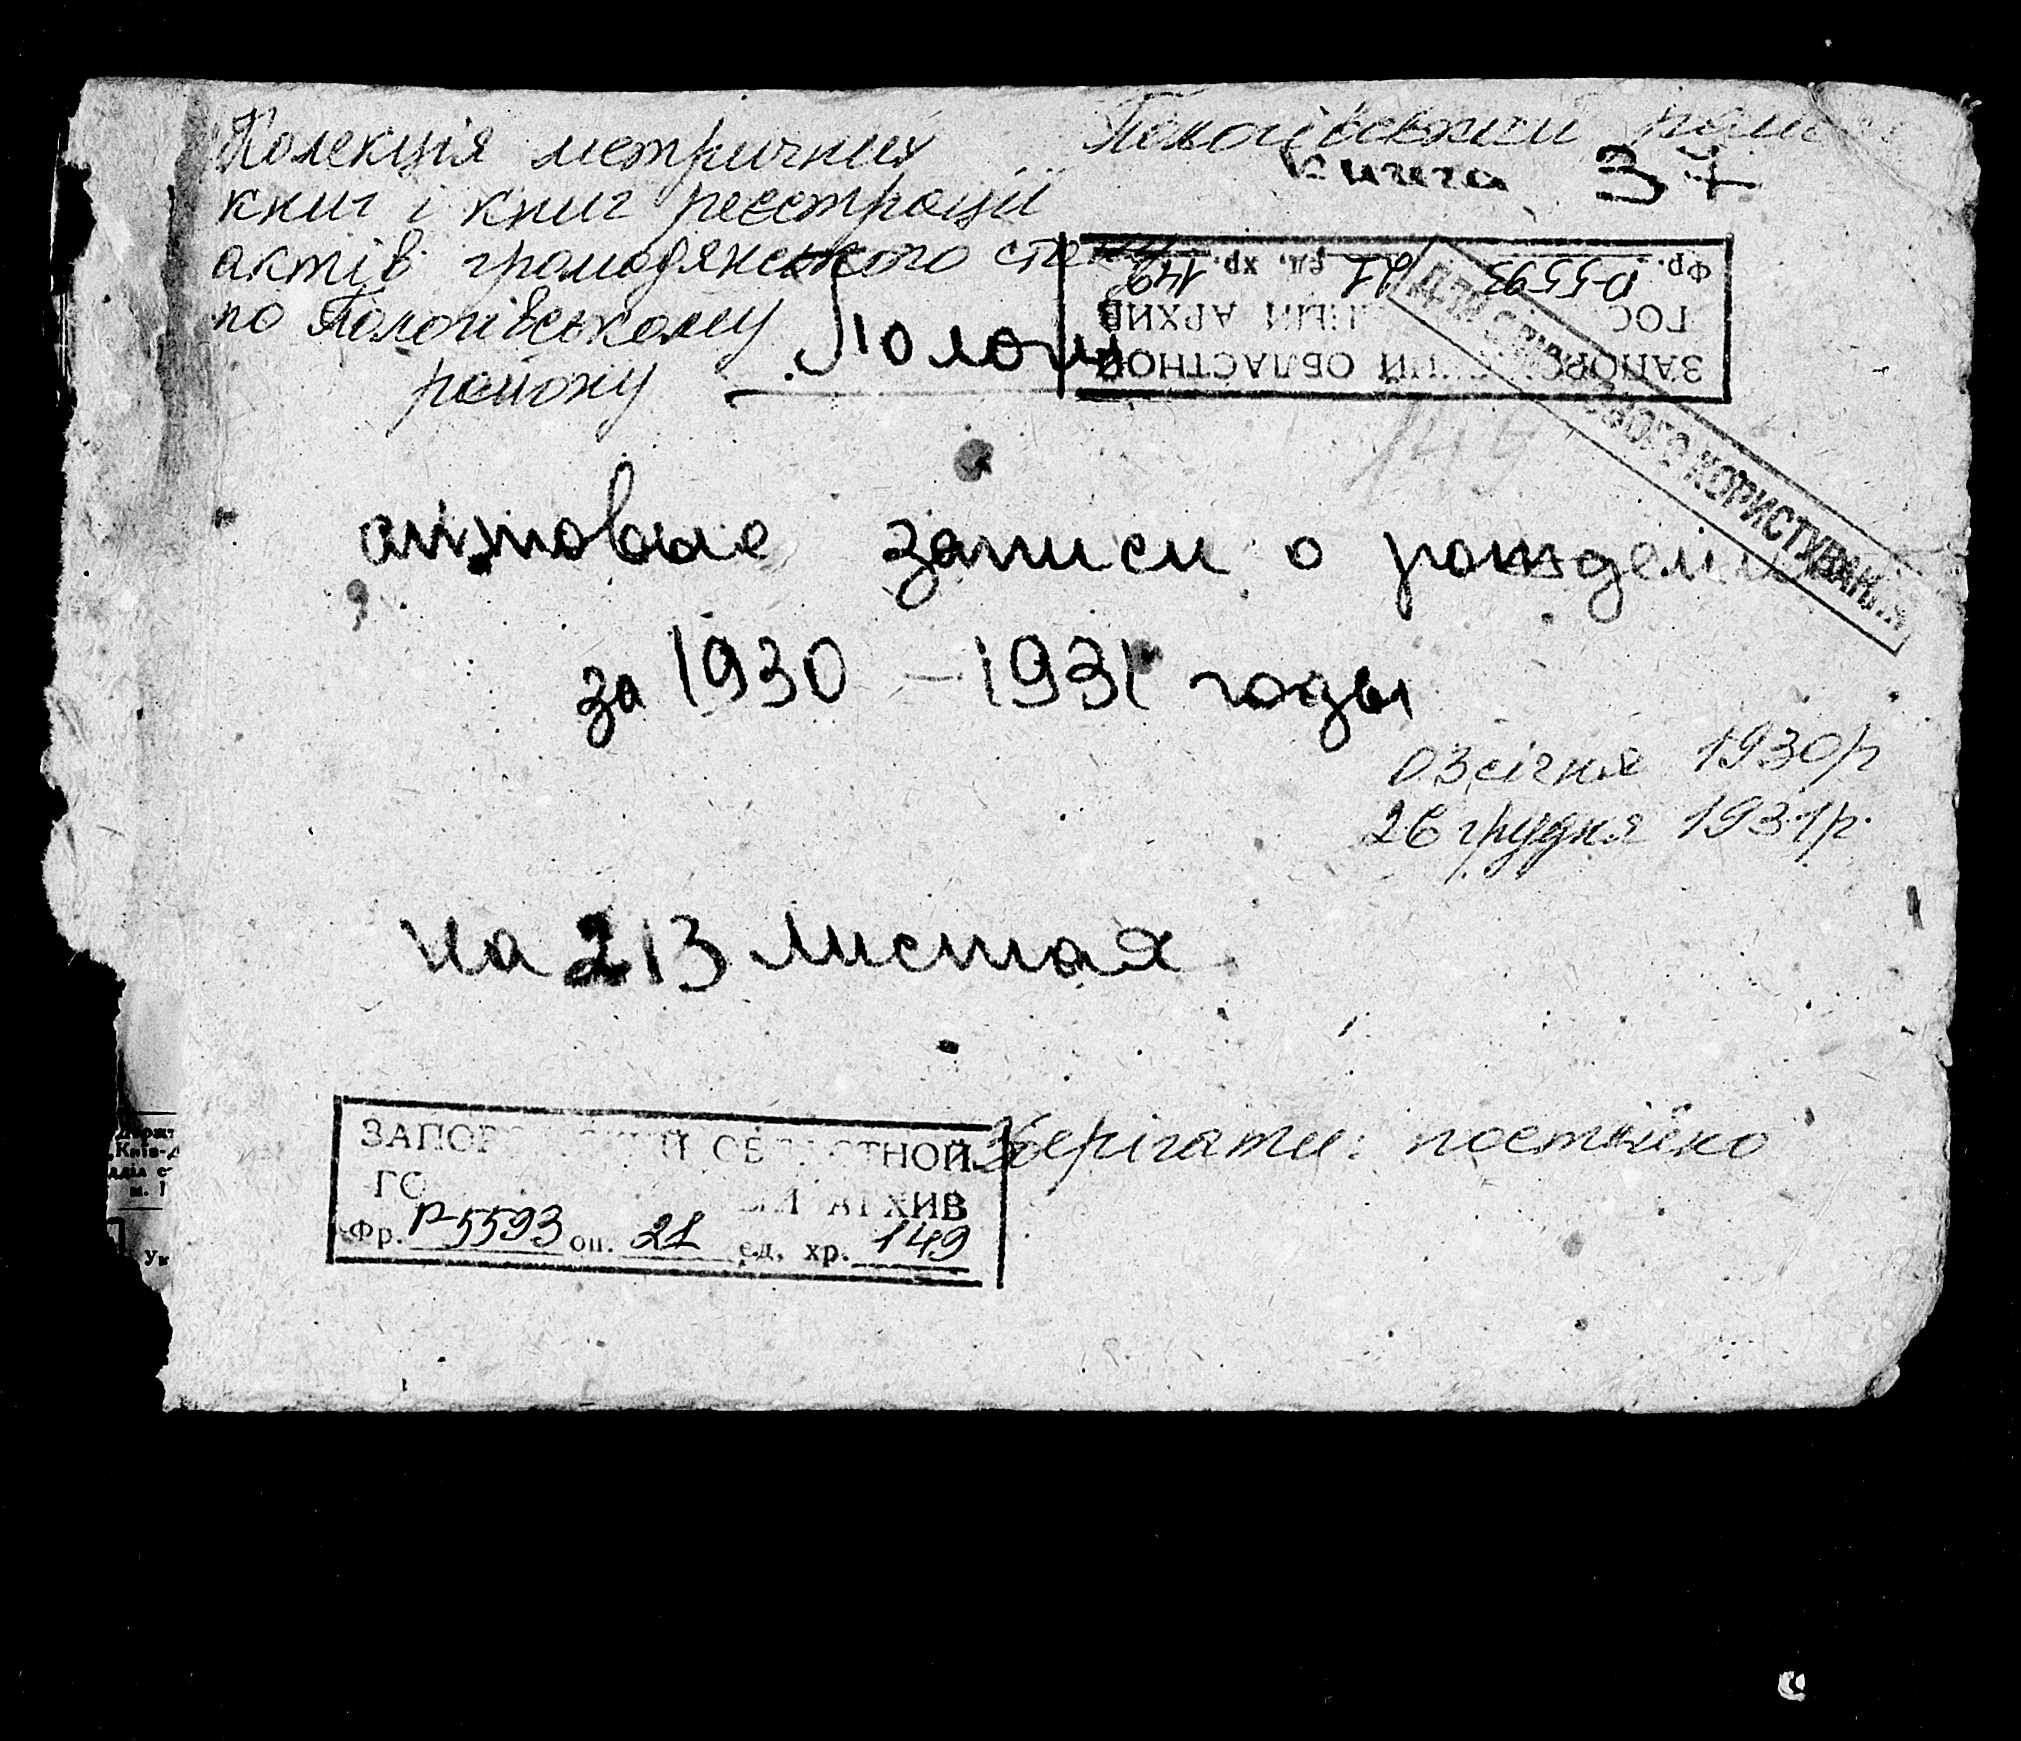 Колекція метричних
книг і книг реєстрації
актів громадянського стану
по Пологівському
району
Пологівський
книга 37
ЗАПОР КИЙ ОБЛАСТНОЙ
ГОС НЫЙ АРХИВ
Фр. Р-5593 21 ед. хр. 149
ДЛЯ СЛУЖБОВОГО КОРИСТУВАННЯ
Пологи
149
актовые записи о рождении
за 1930 – 1931 годы
03 січня 1930р
26 грудня 1931р.
на 213 листах
ЗАПОР СКИЙ ОБЛАСТНОЙ
ГО ЫЙ АРХИВ
Фр. Р-5593 оп. 21 ед. хр. 149
Зберігати: постійно